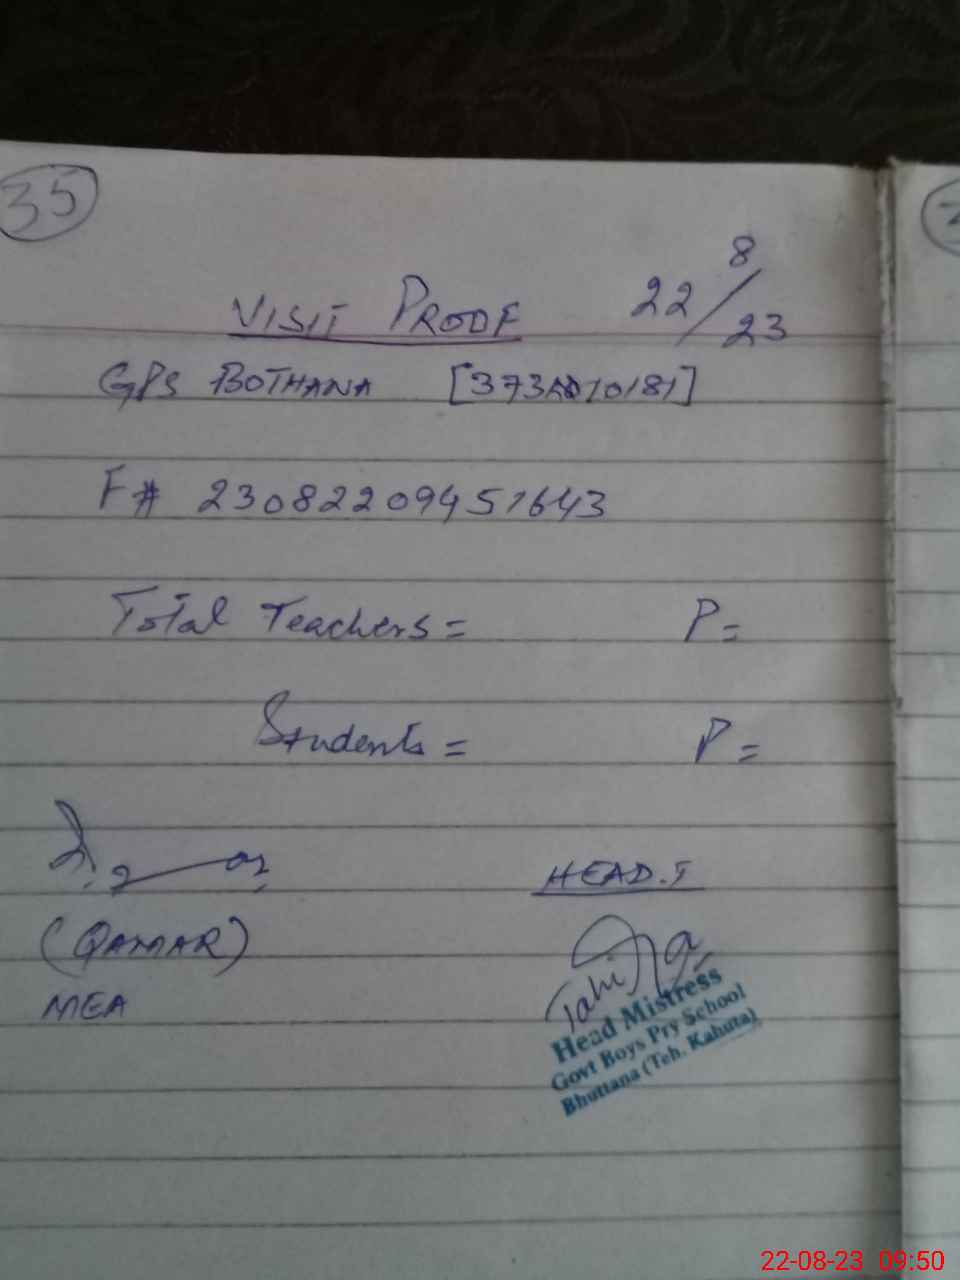 35
VISIT PROOF 22/8/23
GPS BOTHANA
F# 23082209451643
Total Teachers = P=
Students = P=
HEAD.T
(QAMAR)
MEA
Tahira
Head Mistress
Govt Boys Pry School
Bhuttana (Teh. Kahuta)
22-08-23 09:50